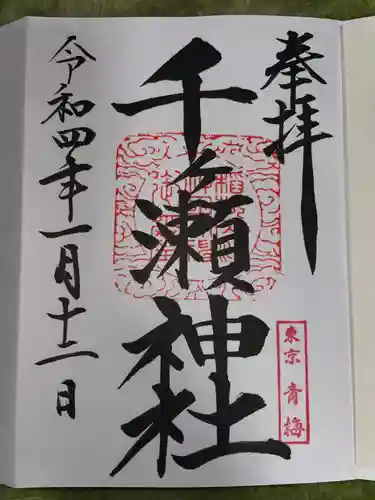 奉拝
千ヶ瀬神社
東京 青梅
令和四年一月十二日